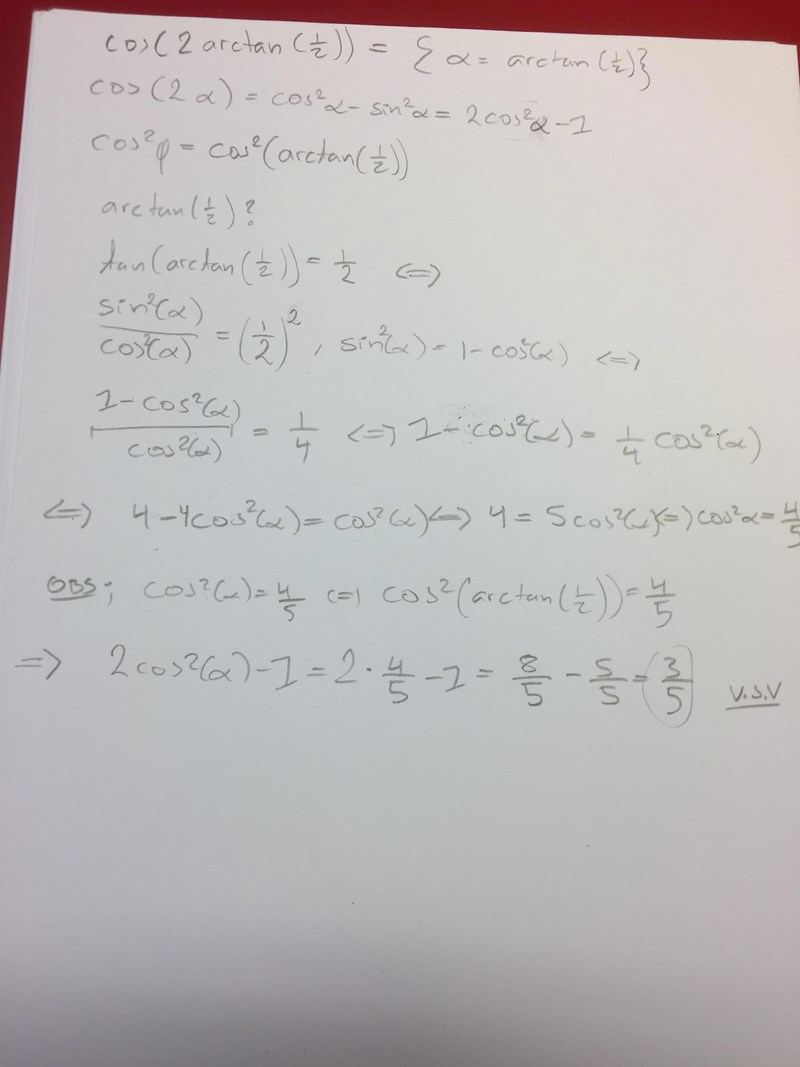 cos(2 arctan(1/2)) = {α = arctan(1/2)}
cos(2α) = cos²α - sin²α = 2cos²α - 1
cos²φ = cos²(arctan(1/2))
arctan(1/2)?
tan(arctan(1/2)) = 1/2 <=>
sin²(α)/cos²(α) = (1/2)², sin²(α) = 1 - cos²(α) <=>
1 - cos²(α)/cos²(α) = 1/4 <=> 1 - cos²(α) = 1/4 cos²(α)
<=> 4 - 4cos²(α) = cos²(α) <=> 4 = 5cos²(α) <=> cos²α = 4/5
OBS; cos²(α) = 4/5 <=> cos²(arctan(1/2)) = 4/5
=> 2cos²(α) - 1 = 2 · 4/5 - 1 = 8/5 - 5/5 = 3/5 V.S.V